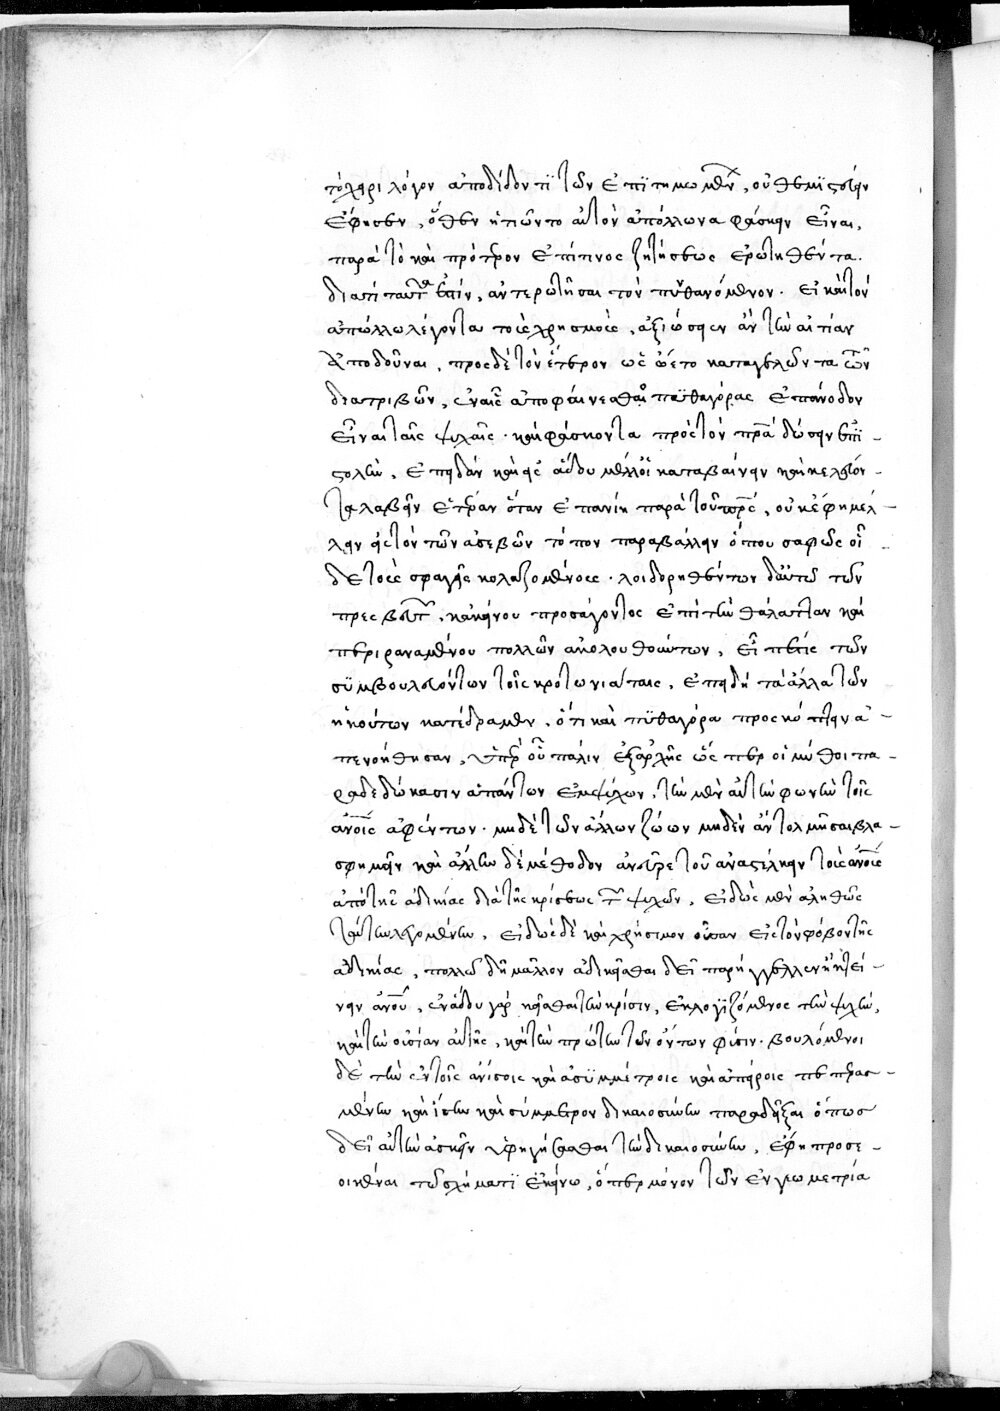 τόληρι λόγον ἀποδίδοντι τῶν ἐπιτημωμένων, οὐ θεμιστὸν
ἔφησεν, ὅθεν ἠτιῶντο αὐτὸν ἀπόλλωνα φάσκειν εἶναι,
παρὰ τὸ καὶ πρότερον ἐπί τινος ζητήσεως ἐρωτηθέντα.
διατί ταῦτα ἐστίν, ἀντερωτῆσαι τὸν πυνθανόμενον. εἰ καὶ τὸν
ἀπόλλω λέγοντα τοὺς χρησμοὺς, ἀξιώσειεν ἂν τὴν αἰτίαν
ἀποδοῦναι, πρὸς δὲ τὸν ἕτερον ὡς ᾤετο καταγελῶντα τῶν
διατριβῶν, ἐν αἷς ἀποφαίνεσθαι πυθαγόρας ἐπάνοδον
εἶναι ταῖς ψυχαῖς. καὶ φάσκοντα πρὸς τὸν πατέρα δώσειν ἐπι-
στολὴν, ἐπειδὰν καὶ εἰς ᾅδου μέλλοι καταβαίνειν καὶ κελεύον-
τα λαβεῖν ἑτέραν ὅταν ἐπανίῃ παρὰ τοῦ πατρός, οὐκ ἔφη μέλ-
λειν εἰς τὸν τῶν ἀσεβῶν τόπον παραβάλλειν ὅπου σαφῶς οἶ
δε τοὺς σφαγεῖς κολαζομένους. λοιδορηθέντων δ' αὐτῷ τῶν
πρεσβευτῶν, κἀκείνου προσάγοντος ἐπὶ τὴν θάλατταν καὶ
περιραναμένου πολλῶν ἀκολουθούντων, εἶπέ τις τῶν
συμβουλευόντων τοῖς κροτωνιάταις, ἐπειδὴ τἆλλα τῶν
ἡκόντων κατέδραμεν, ὅτι καὶ πυθαγόρα προσκόπτειν ἀ-
πενοήθησαν, ὑπὲρ οὗ πάλιν ἐξ ἀρχῆς ὥσπερ οἱ μῦθοι πα-
ραδεδώκασιν ἁπάντων ἐμψύχων, τὴν μὲν αὐτὴν φωνὴν τοῖς
ἀνθρώποις ἀφέντων. μηδὲ τῶν ἄλλων ζώων μηδὲν ἂν τολμῆσαι βλα-
σφημεῖν καὶ ἄλλην δὲ μέθοδον ἀνεῦρε τοῦ ἀναστέλλειν τοὺς ἀνθρώπους
ἀπὸ τῆς ἀδικίας διὰ τῆς κρίσεως τῶν ψυχῶν, εἰδὼς μὲν ἀληθῶς
ταύτην λεγομένην, εἰδὼς δὲ καὶ χρήσιμον οὖσαν εἰς τὸν φόβον τῆς
ἀδικίας, πολλῷ δὴ μᾶλλον ἀδικεῖσθαι δεῖ παρήγγελλεν ἢ κτεί-
νειν ἄνθρωπον, ἐν ᾅδου γὰρ κεῖσθαι τὴν κρίσιν, ἐκλογιζόμενος τὴν ψυχὴν,
καὶ τὴν οὐσίαν αὐτῆς, καὶ τὴν πρώτην τῶν ὄντων φύσιν. βουλόμενοι
δὲ τὴν ἐν τοῖς ἀνίσοις καὶ ἀσυμμέτροις καὶ ἀπείροις πεπερασ-
μένην καὶ ἴσην καὶ σύμμετρον δικαιοσύνην παραδεῖξαι ὅπως
δεῖ αὐτὴν ἀσκεῖν ὑφηγήσασθαι τὴν δικαιοσύνην, ἔφη προσε-
οικέναι τῷ σχήματι ἐκείνῳ, ὅπερ μόνον τῶν ἐν γεωμετρία